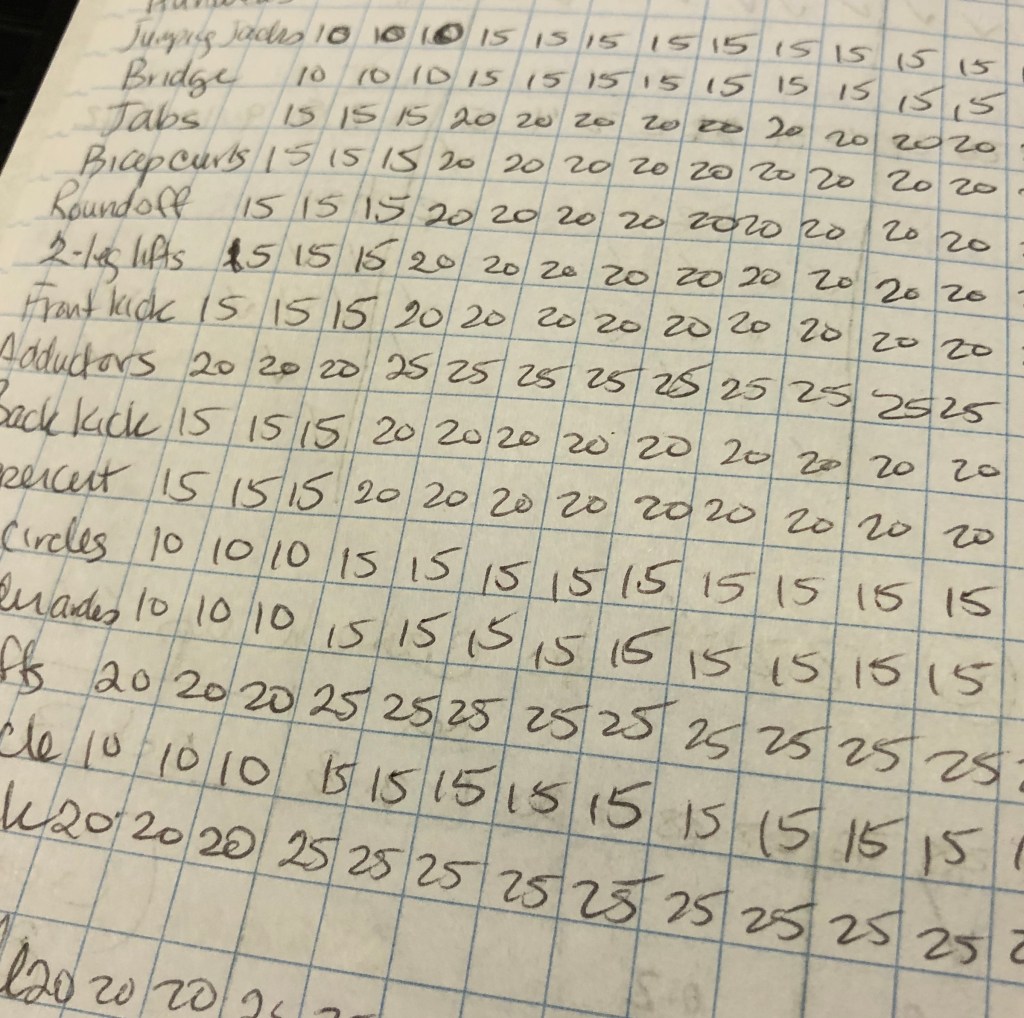 Jumping Jacks 10 10 10 15 15 15 15 15 15 15 15 15
Bridge 10 10 10 15 15 15 15 15 15 15 15 15
Jabs 15 15 15 20 20 20 20 20 20 20 20 20
Bicep curls 15 15 15 20 20 20 20 20 20 20 20 20
Roundoff 15 15 15 20 20 20 20 20 20 20 20 20
2-leg lifts 15 15 15 20 20 20 20 20 20 20 20 20
Front kick 15 15 15 20 20 20 20 20 20 20 20 20
Adductors 20 20 20 25 25 25 25 25 25 25 25 25
Back kick 15 15 15 20 20 20 20 20 20 20 20 20
percut 15 15 15 20 20 20 20 20 20 20 20 20
Circles 10 10 10 15 15 15 15 15 15 15 15 15
10 10 10 15 15 15 15 15 15 15 15 15
fts 20 20 20 25 25 25 25 25 25 25 25 25
cle 10 10 10 15 15 15 15 15 15 15 15 15
k 20 20 20 25 25 25 25 25 25 25 25 25
l 20 20 20